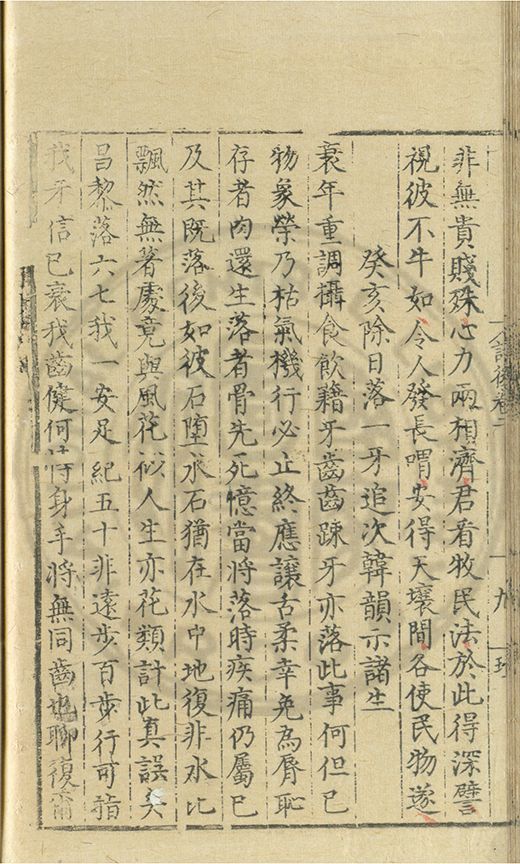 非無貴賤殊心力兩相濟君看牧民法於此得深譬
視彼不牛如令人發長喟安得天壤間各使民物遂
癸亥除日落一牙追次韓韻示諸生
衰年重調攝食飲藉牙齒齒踈牙亦落此事何但已
物象榮乃枯氣機行必止終應讓舌柔幸免為脣恥
存者肉還生落者骨先死憶當將落時疾痛仍屬已
及其既落後如彼石墮水石猶在水中地復非水比
飄然無著處竟與風花似人生亦花類計此真誤矣
昌黎落六七我一安足紀五十非遠步百步行可指
我牙信已衰我齒健何恃身手將無同齒也聊復甯
詩後卷二
九